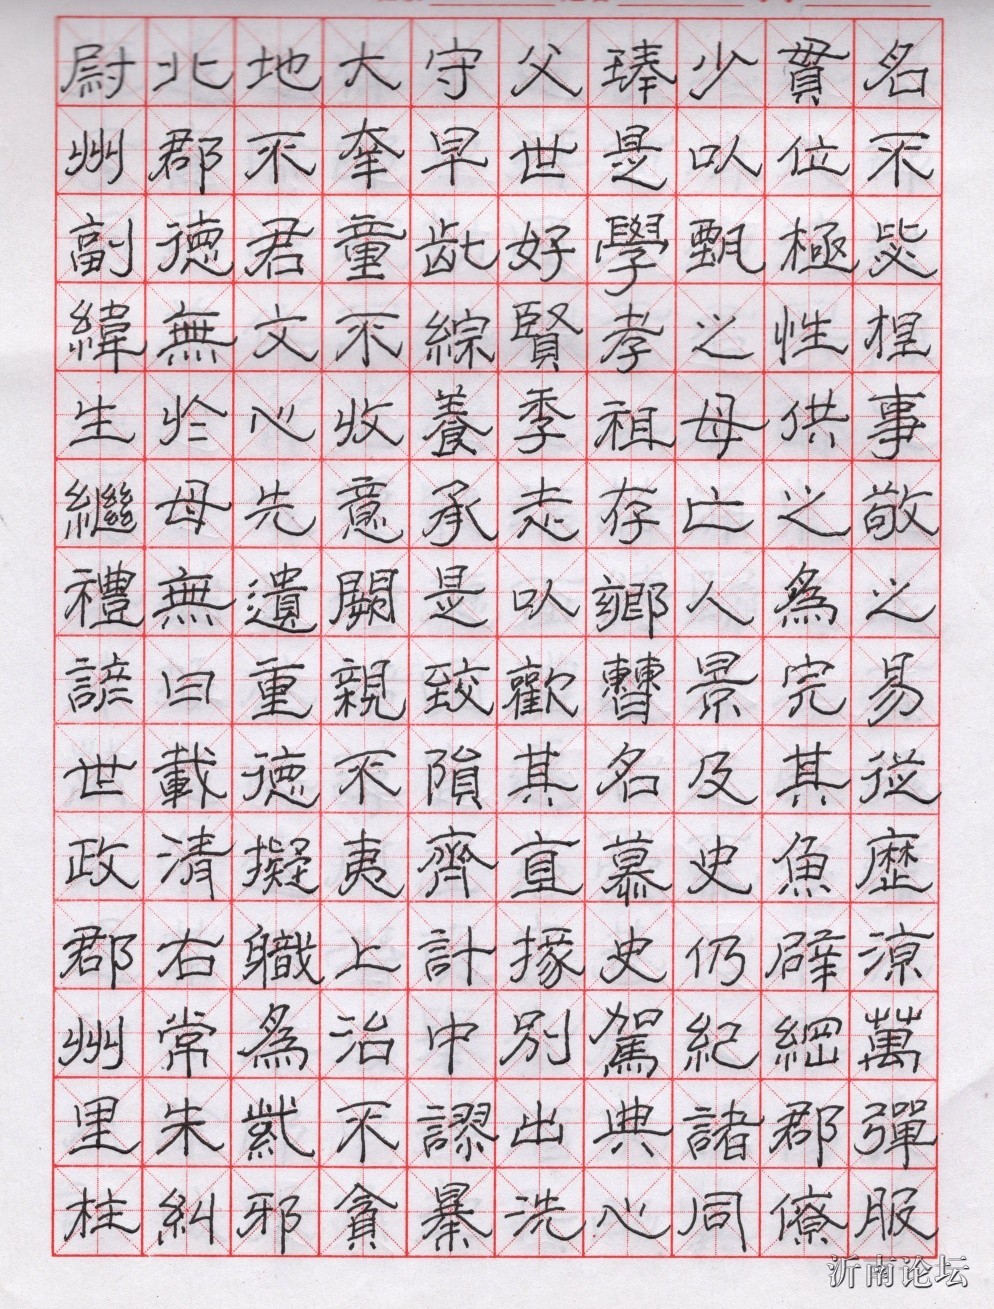 尉北地大守父琫少貫名
州郡不幸早世是以位不
副德君童齔好學甄極毖
緯無文不綜賢孝之性根
生於心收養季祖母供事
繼母先意承志存亡之敬
禮無遺闕是以鄉人為之
諺曰重親致歡曹景完易
世載德不隕其名及其從
政清擬夷齊直慕史魚歷
郡右職上計掾史仍辟涼
州常為治中別駕紀綱萬
里朱紫不謬出典諸郡彈
枉糾邪貪暴洗心同僚服
沂南论坛